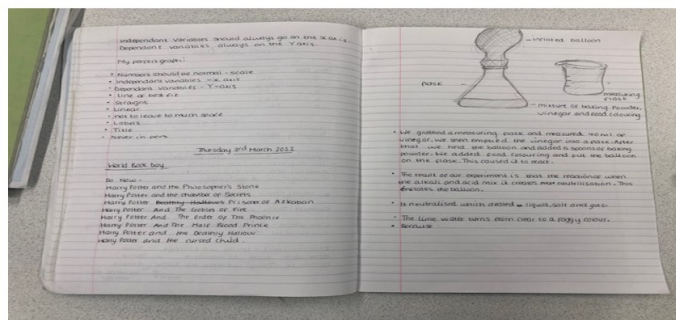 Independent variables should always go on the X axis.
Dependant variables always on the Y axis.
My perfect graph:
• Numbers should be normal - scale
• Independent variables - x axis
• Dependant variables - Y-axis
• Line of best fit
• Straight
• Linear
• not to leave to much space
• Labels
• Title
• Never in pen
Thursday 3rd March 2022
World Book Day
Do Now:
Harry Potter and the Philosopher's Stone
Harry Potter and the chamber of Secrets
Harry Potter Deathly Hallows Prisoner of Azkaban
Harry Potter And The Goblet of Fire
Harry Potter And The Order of The Phoenix
Harry Potter And The Half Blood Prince
Harry Potter and the Deathly Hallow
Harry Potter and the cursed child.
inflated balloon
flask
measuring
flask
mixture of baking powder,
vinegar and food colouring
• We grabbed a measuring flask and measured of
vinegar, we then emptied the vinegar into a flask. After
that we held the balloon and added 5 spoons of baking
powder. We added food colouring and put the balloon
on the flask. This caused it to react.
• The result of our experiment is that the reactions when
the alkali and acid mix it creates neutralisation. This
the balloon.
• It neutralised which added liquid, salt and gas.
• The lime water turns from clear to a foggy colour.
• Because